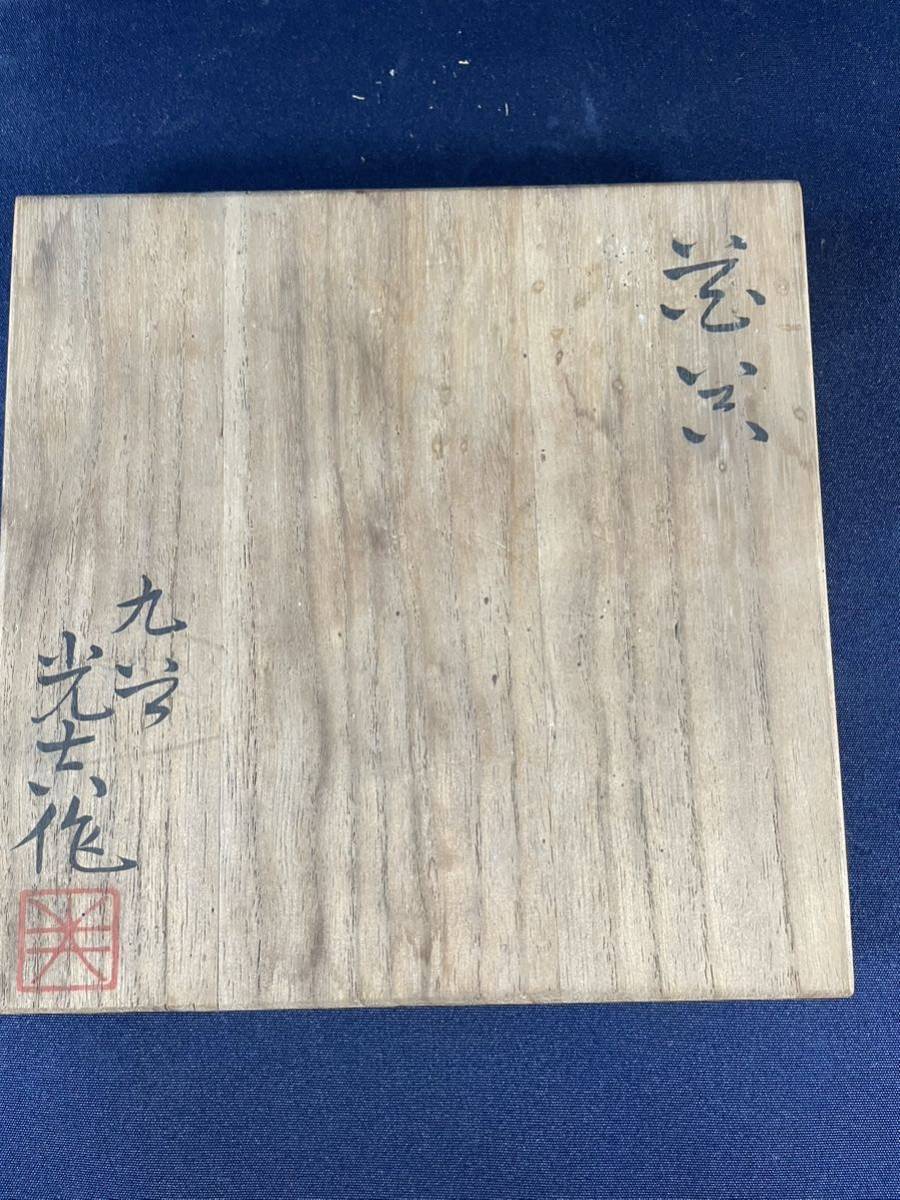 花器
九谷
光吉作